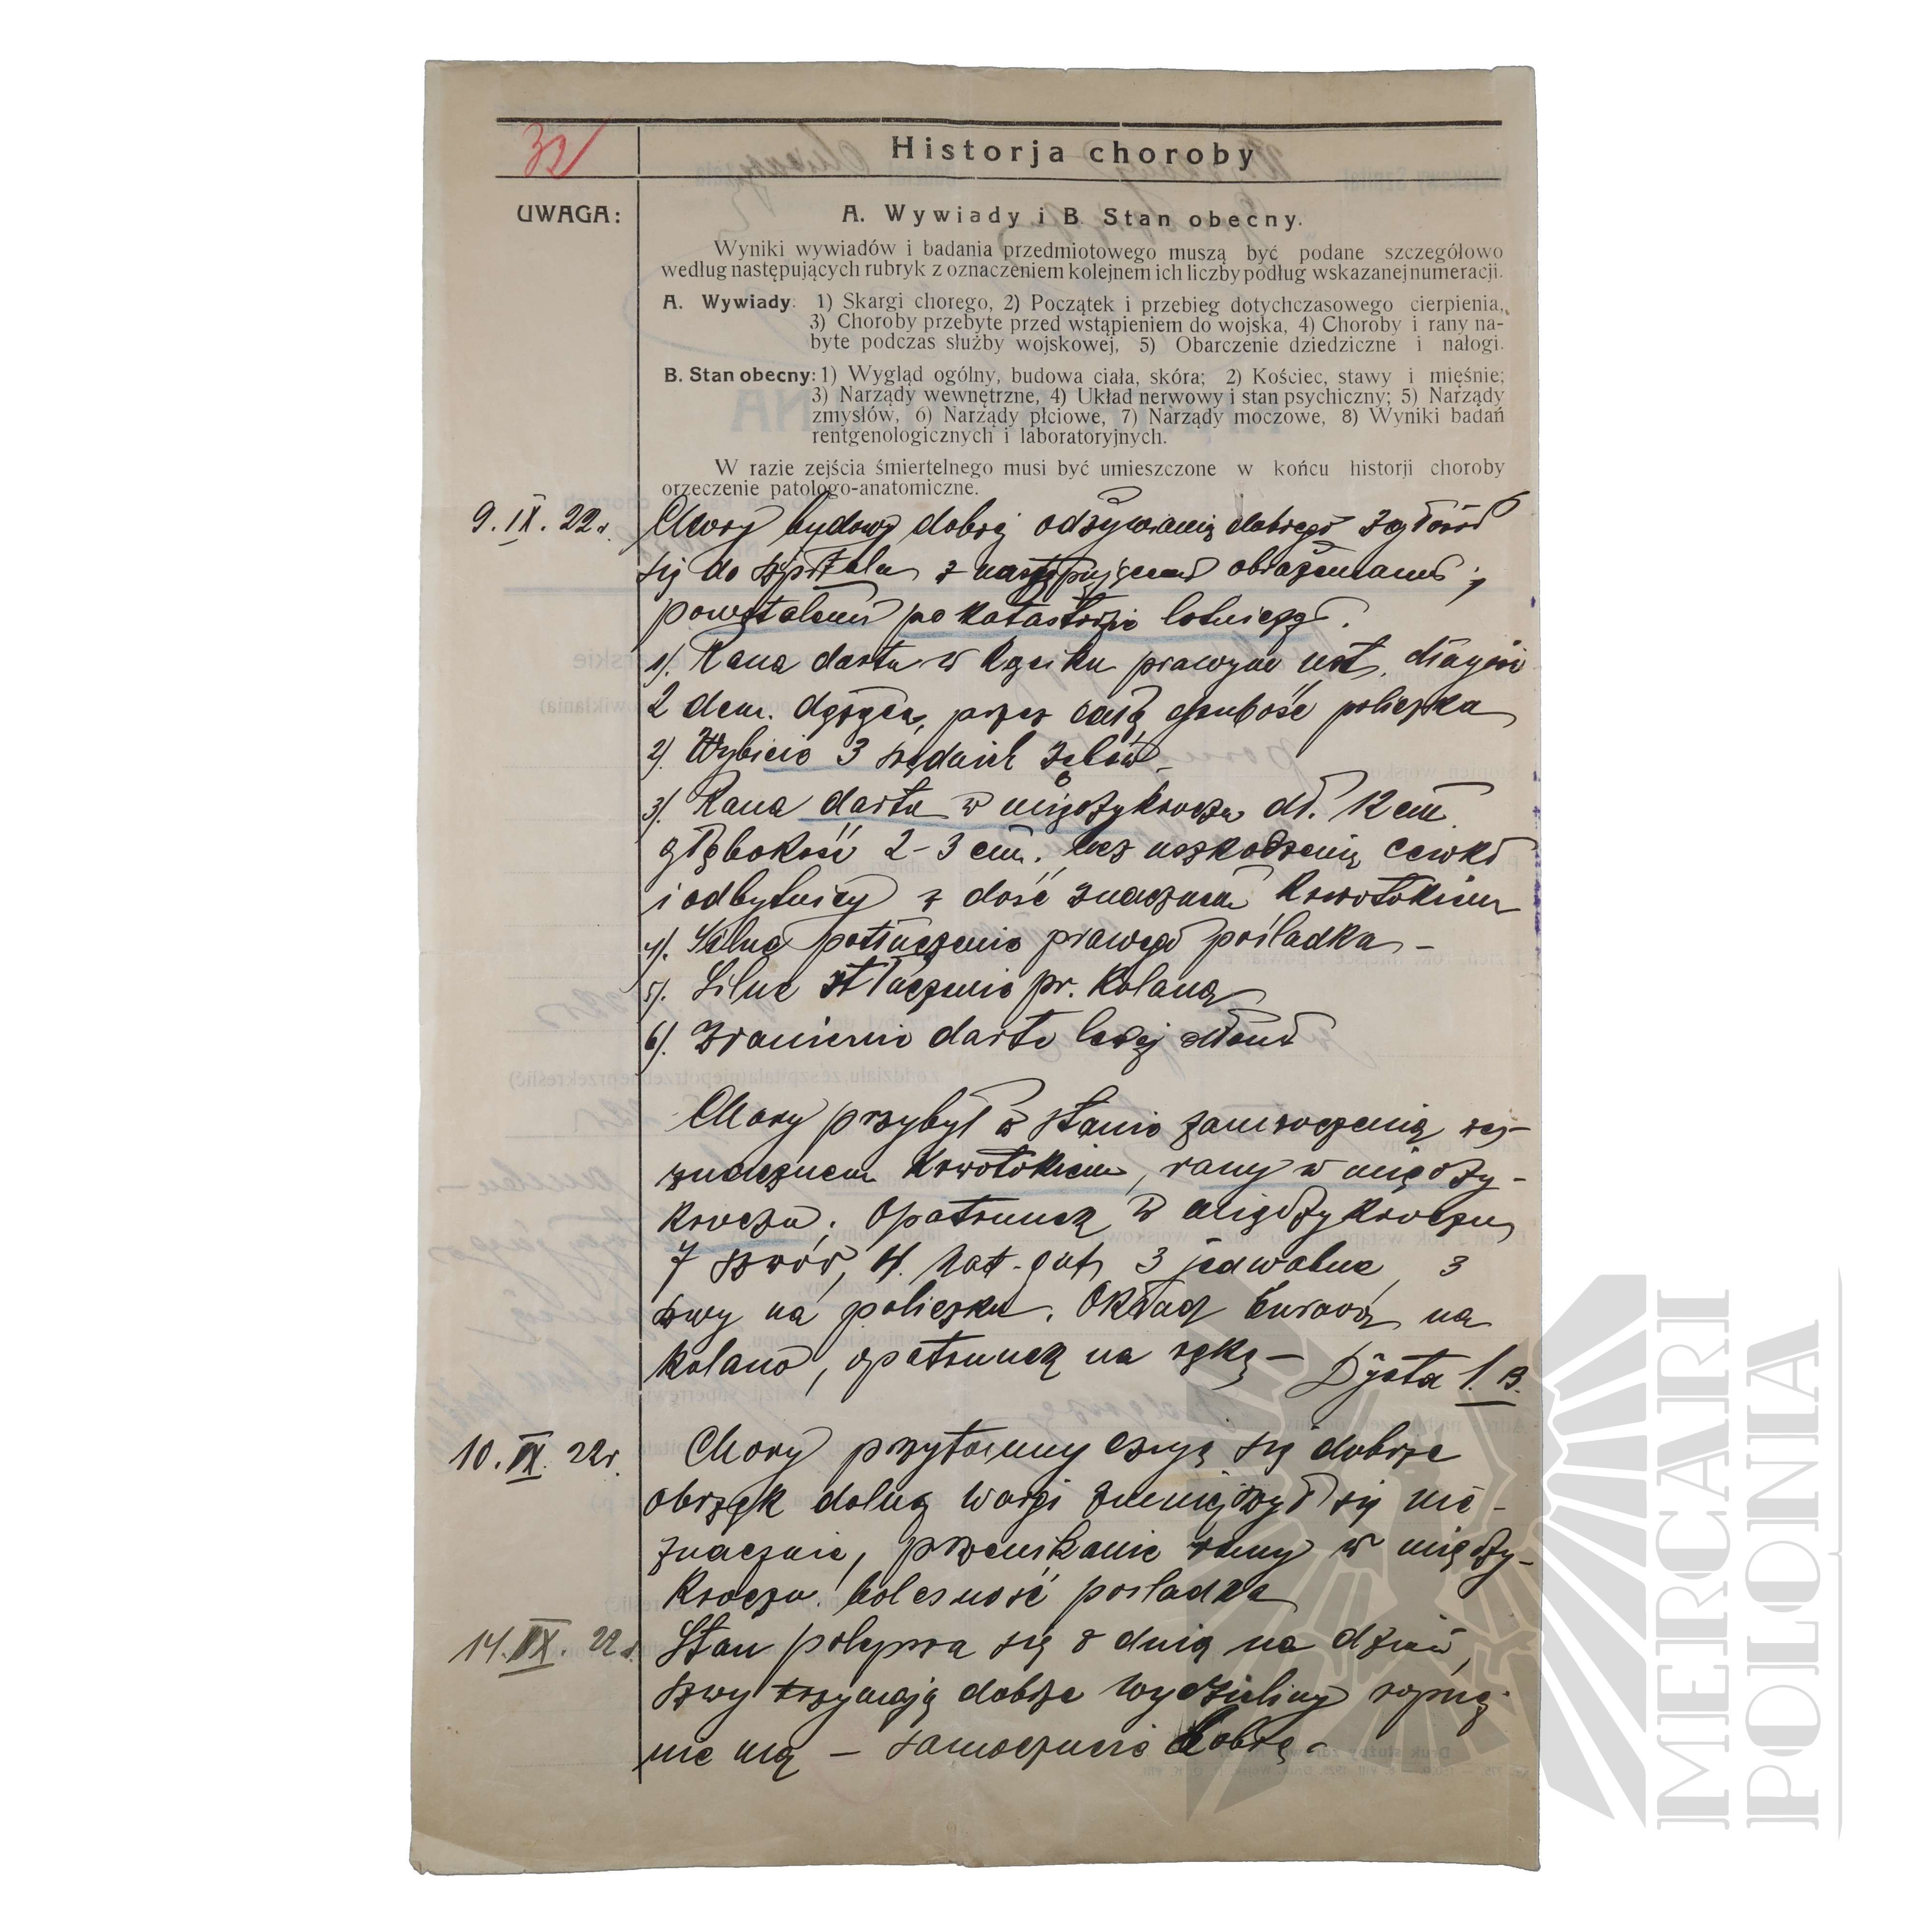 32
Historja choroby
UWAGA:
A. Wywiady i B. Stan obecny.
Wyniki wywiadów i badania przedmiotowego muszą być podane szczegółowo
według następujących rubryk z oznaczeniem kolejnem ich liczby podług wskazanej numeracji.
A. Wywiady: 1) Skargi chorego, 2) Początek i przebieg dotychczasowego cierpienia,
3) Choroby przebyte przed wstąpieniem do wojska, 4) Choroby i rany na-
byte podczas służby wojskowej, 5) Obarczenie dziedziczne i nałogi.
B. Stan obecny: 1) Wygląd ogólny, budowa ciała, skóra; 2) Kościec, stawy i mięśnie;
3) Narządy wewnętrzne, 4) Układ nerwowy i stan psychiczny; 5) Narządy
zmysłów, 6) Narządy płciowe, 7) Narządy moczowe, 8) Wyniki badań
rentgenologicznych i laboratoryjnych.
W razie zejścia śmiertelnego musi być umieszczone w końcu historji choroby
orzeczenie patologo-anatomiczne.
9. IX. 22 r. Chory budowy dobrej odżywienia dobrego zgłosił
się do szpitala z następującemi obrażeniami,
powstałemi po katastrofie lotniczej.
1). Rana darta w kąciku prawym ust, długości
2 dcm. dążąca, przez całą grubość policzka
2). Wybicie 3 zębów
3). Rana darta w międzykroczu dł. 12 cm
głębokość 2-3 cm. bez uszkodzenia cewki
i odbytnicy z dość znacznem krwotokiem
4). Silne potłuczenie prawego pośladka –
5). Silne stłuczenie pr. kolana
6). Zranienie darte lewej dłoni
Chory przybył w stanie zamroczenia ze
znacznem krwotokiem, rany w między-
kroczu. Opatrunek w międzykroczu
7 szwów, 4. kat-gut, 3 jedwabne, 3
szwy na policzku. Okład na
kolano, opatrunek na rękę – Dyeta 1. B.
10. IX 22r. Chory przytomny czuje się dobrze
obrzęk dolnej wargi zmniejszył się nie-
znacznie, przemywanie rany w między-
kroczu. bolesność pośladka
14. IX. 22 r. Stan polepsza się z dnia na dzień,
szwy trzymają dobrze wydzieliny ropnej
nie ma – samoczucie dobre.
MERCARI
POLONIA